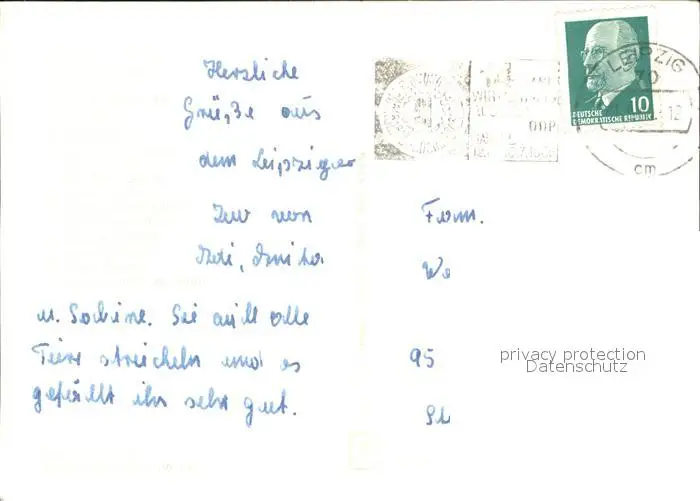 Herzliche
Grüße aus
dem Leipziger
Zoo von
u. Sabine. Sie will alle
Tiere streicheln und es
gefällt ihr sehr gut.
LEIPZIG
10
DEUTSCHE
DEMOKRATISCHE REPUBLIK
12
DDR
cm
Fam.
We
95
privacy protection
Datenschutz